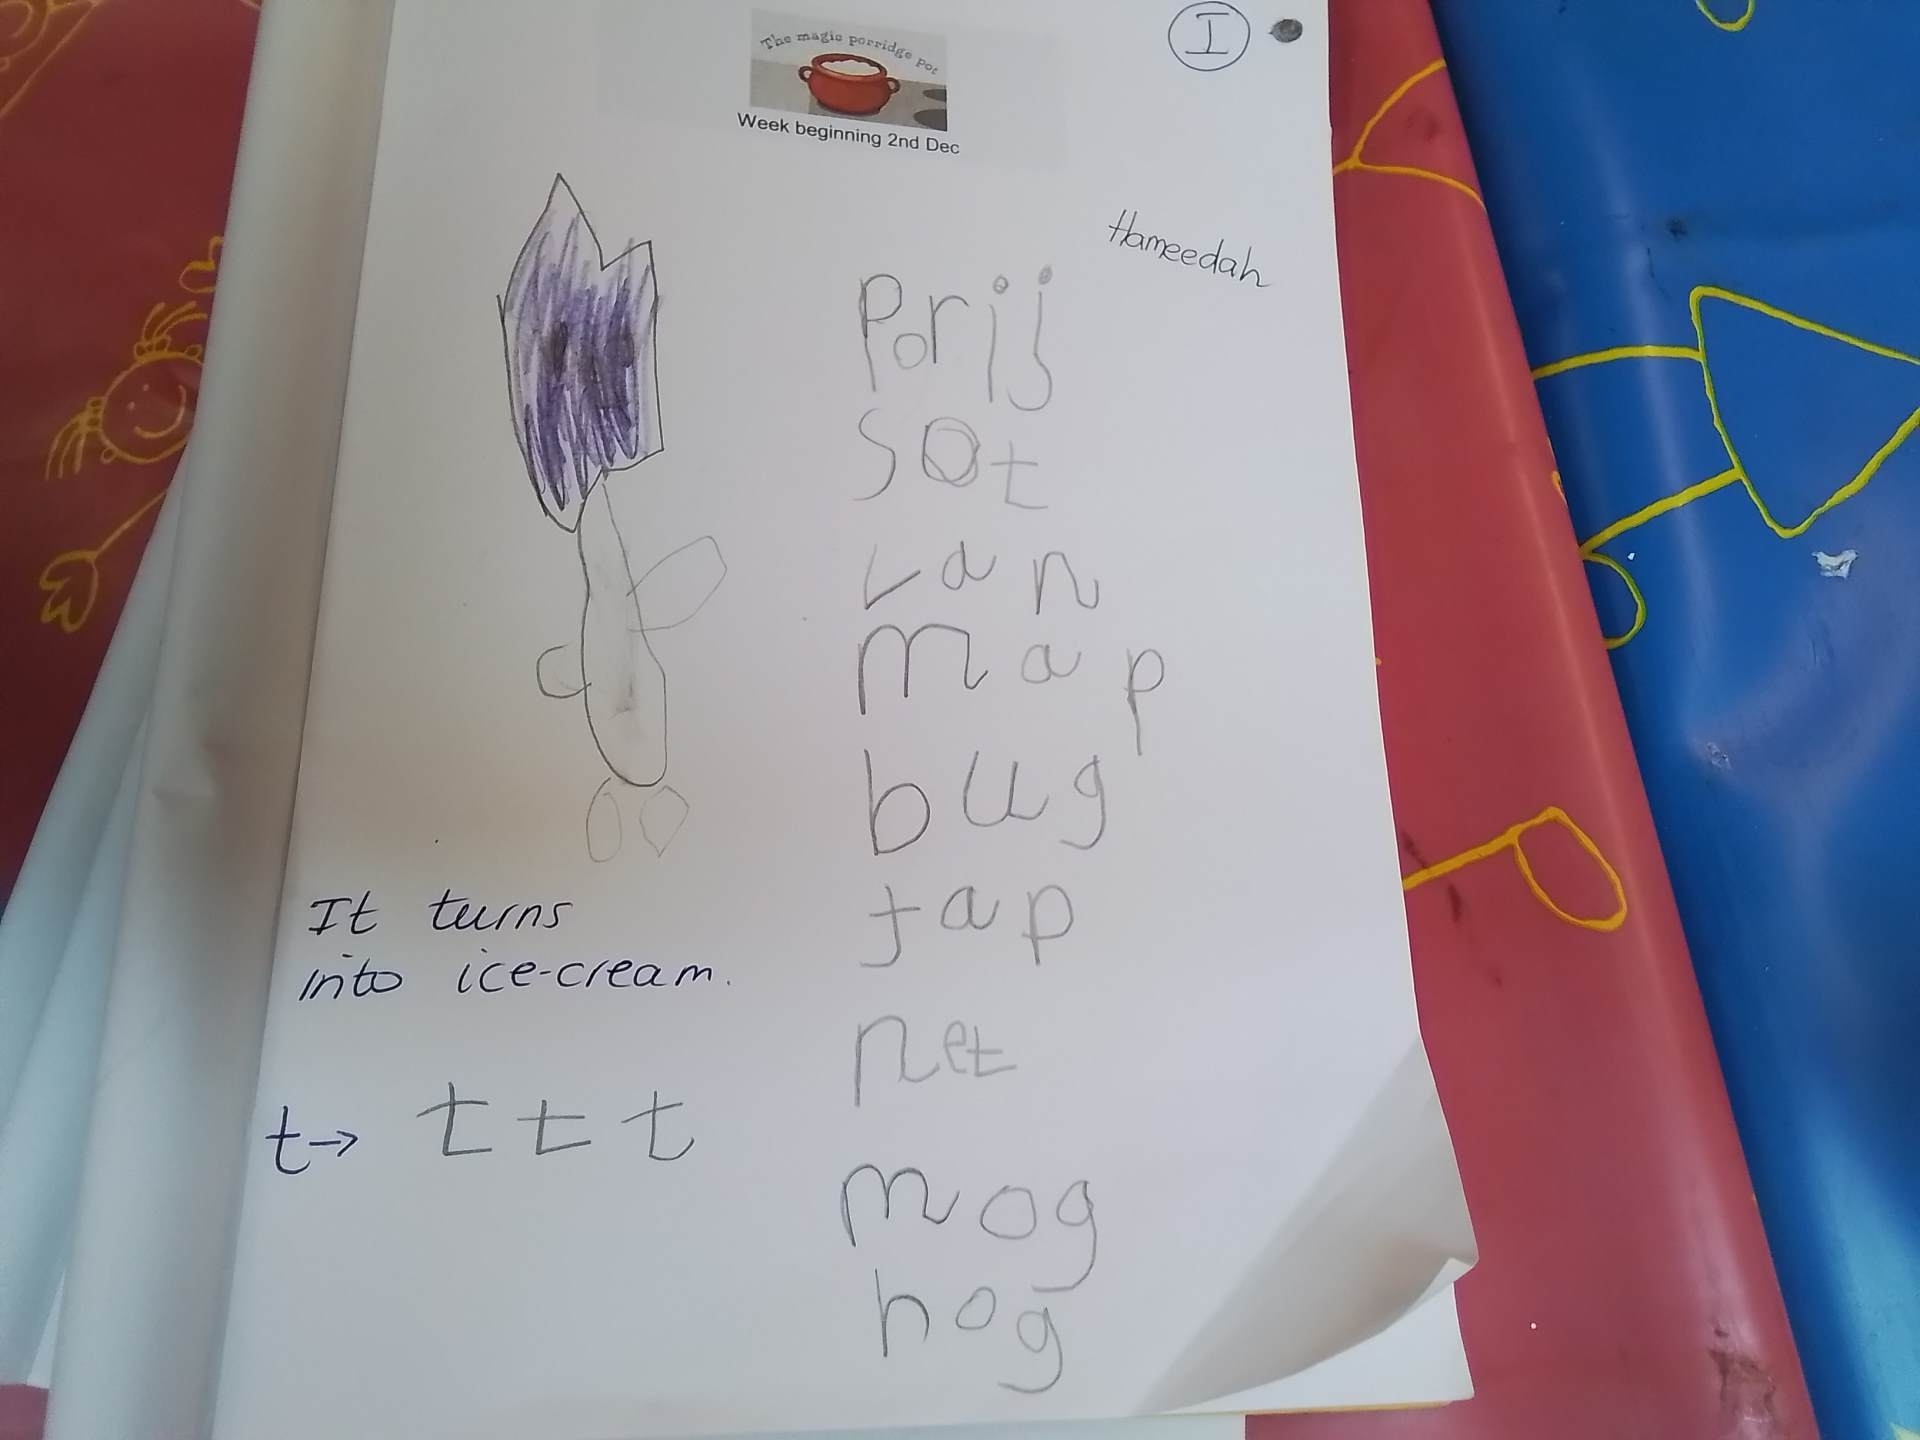 The magic porridge pot
Week beginning 2nd Dec
I
Hameedah
Porij
sot
ran
map
bug
tap
net
mog
hog
It turns
into ice-cream.
t→ t t t